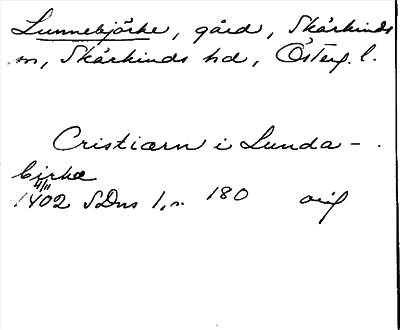 Lunnebjörke, gård, Skärkinds
sn, Skärkinds hd, Österg. l.
Cristiærn i Lunda-
birke
4/11
1402 SDns 1, n. 180 orig